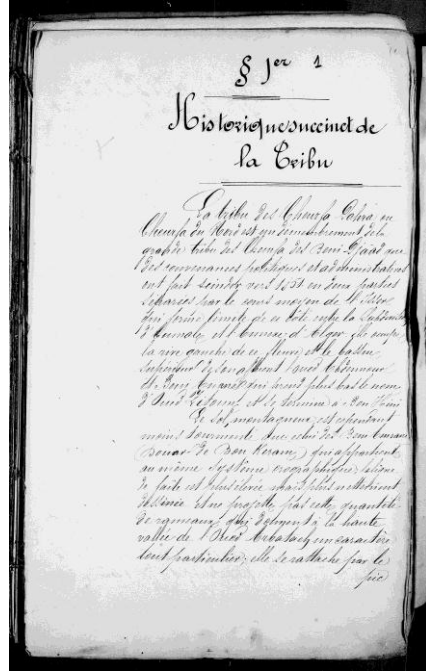 § 1er 1
Historique succinct de
la Tribu
La tribu des Cheurfa Dahra ou
Cheurfa du Nord est un démembrement de la
grande tribu des Cheurfa des Beni-Djaad que
des convenances politiques et administratives
ont fait scinder vers 1851 en deux parties
séparées par le cours moyen de l'Isser
qui forme limite de ce côté entre la Subdivision
d'Aumale et l'Annexe d'Alger elle occupe
la rive gauche de ce fleuve et le bassin
supérieur de son affluent l'oued
et qui prend plus bas le nom
d'Oued et se termine à Ben Hini
Le sol montagneux est cependant
moins tourmenté que celui des Beni
Douar de Bou Keram, qui appartient
au même système orographique, la ligne
de faite est plus élevée mais plus nettement
dessinée et ne projette pas cette quantité
de rameaux qui donnent à la haute
vallée de l'Oued Arbatach un caractère
tout particulier, elle se rattache par le
pic